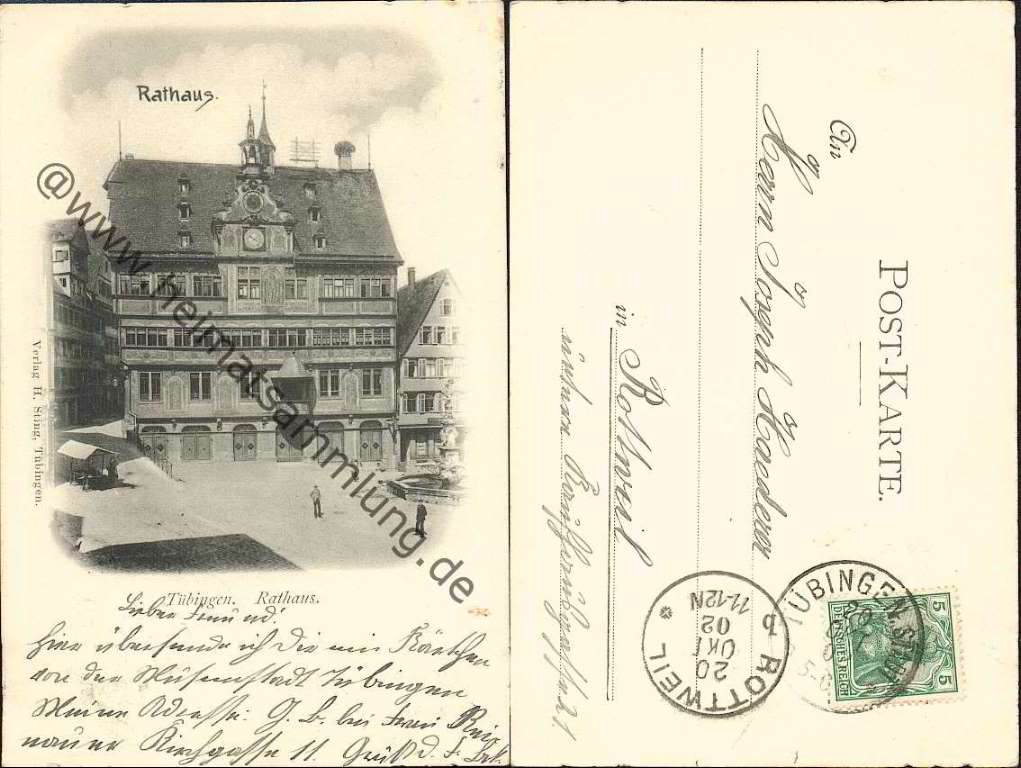 Rathaus.
@www.heimatsammlung.de
Verlag H. Sting, Tübingen.
Tübingen. Rathaus.
Lieber Freund!
Hier übersende ich die ein Kärtchen
von der Musenstadt Tübingen
Meine Adresse: G. B. bei Frau
Kirchgasse 11. Gruß d. F.
POST-KARTE.
An
Herrn Joseph Haederer
in Rottweil
21
TÜBINGEN
ROTTWEIL
20
OKT
02
11-12N
5
DEUTSCHES REICH
5